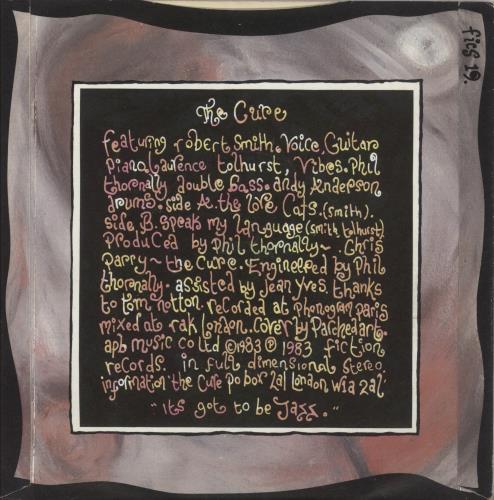 The Cure
featuring robert smith. Voice, Guitar
piano, Laurence tolhurst, Vibes. Phil
thornally double bass. andy Anderson
drums. side A. the love Cats. (smith).
side B. speak my language (smith tolhurst)
produced by phil thornally~. Chris
Parry~ the Cure. Engineered by Phil
thornally. assisted by Jean Yves thanks
to tom notton. recorded at phonogram paris
mixed at rak london. cover by Parched art.
apb music co ltd ©1983 ℗ 1983 fiction
records. in full dimensional stereo.
information 'the Cure po box 2al london w1a 2al'
"its got to be Jazz."
fics 19.